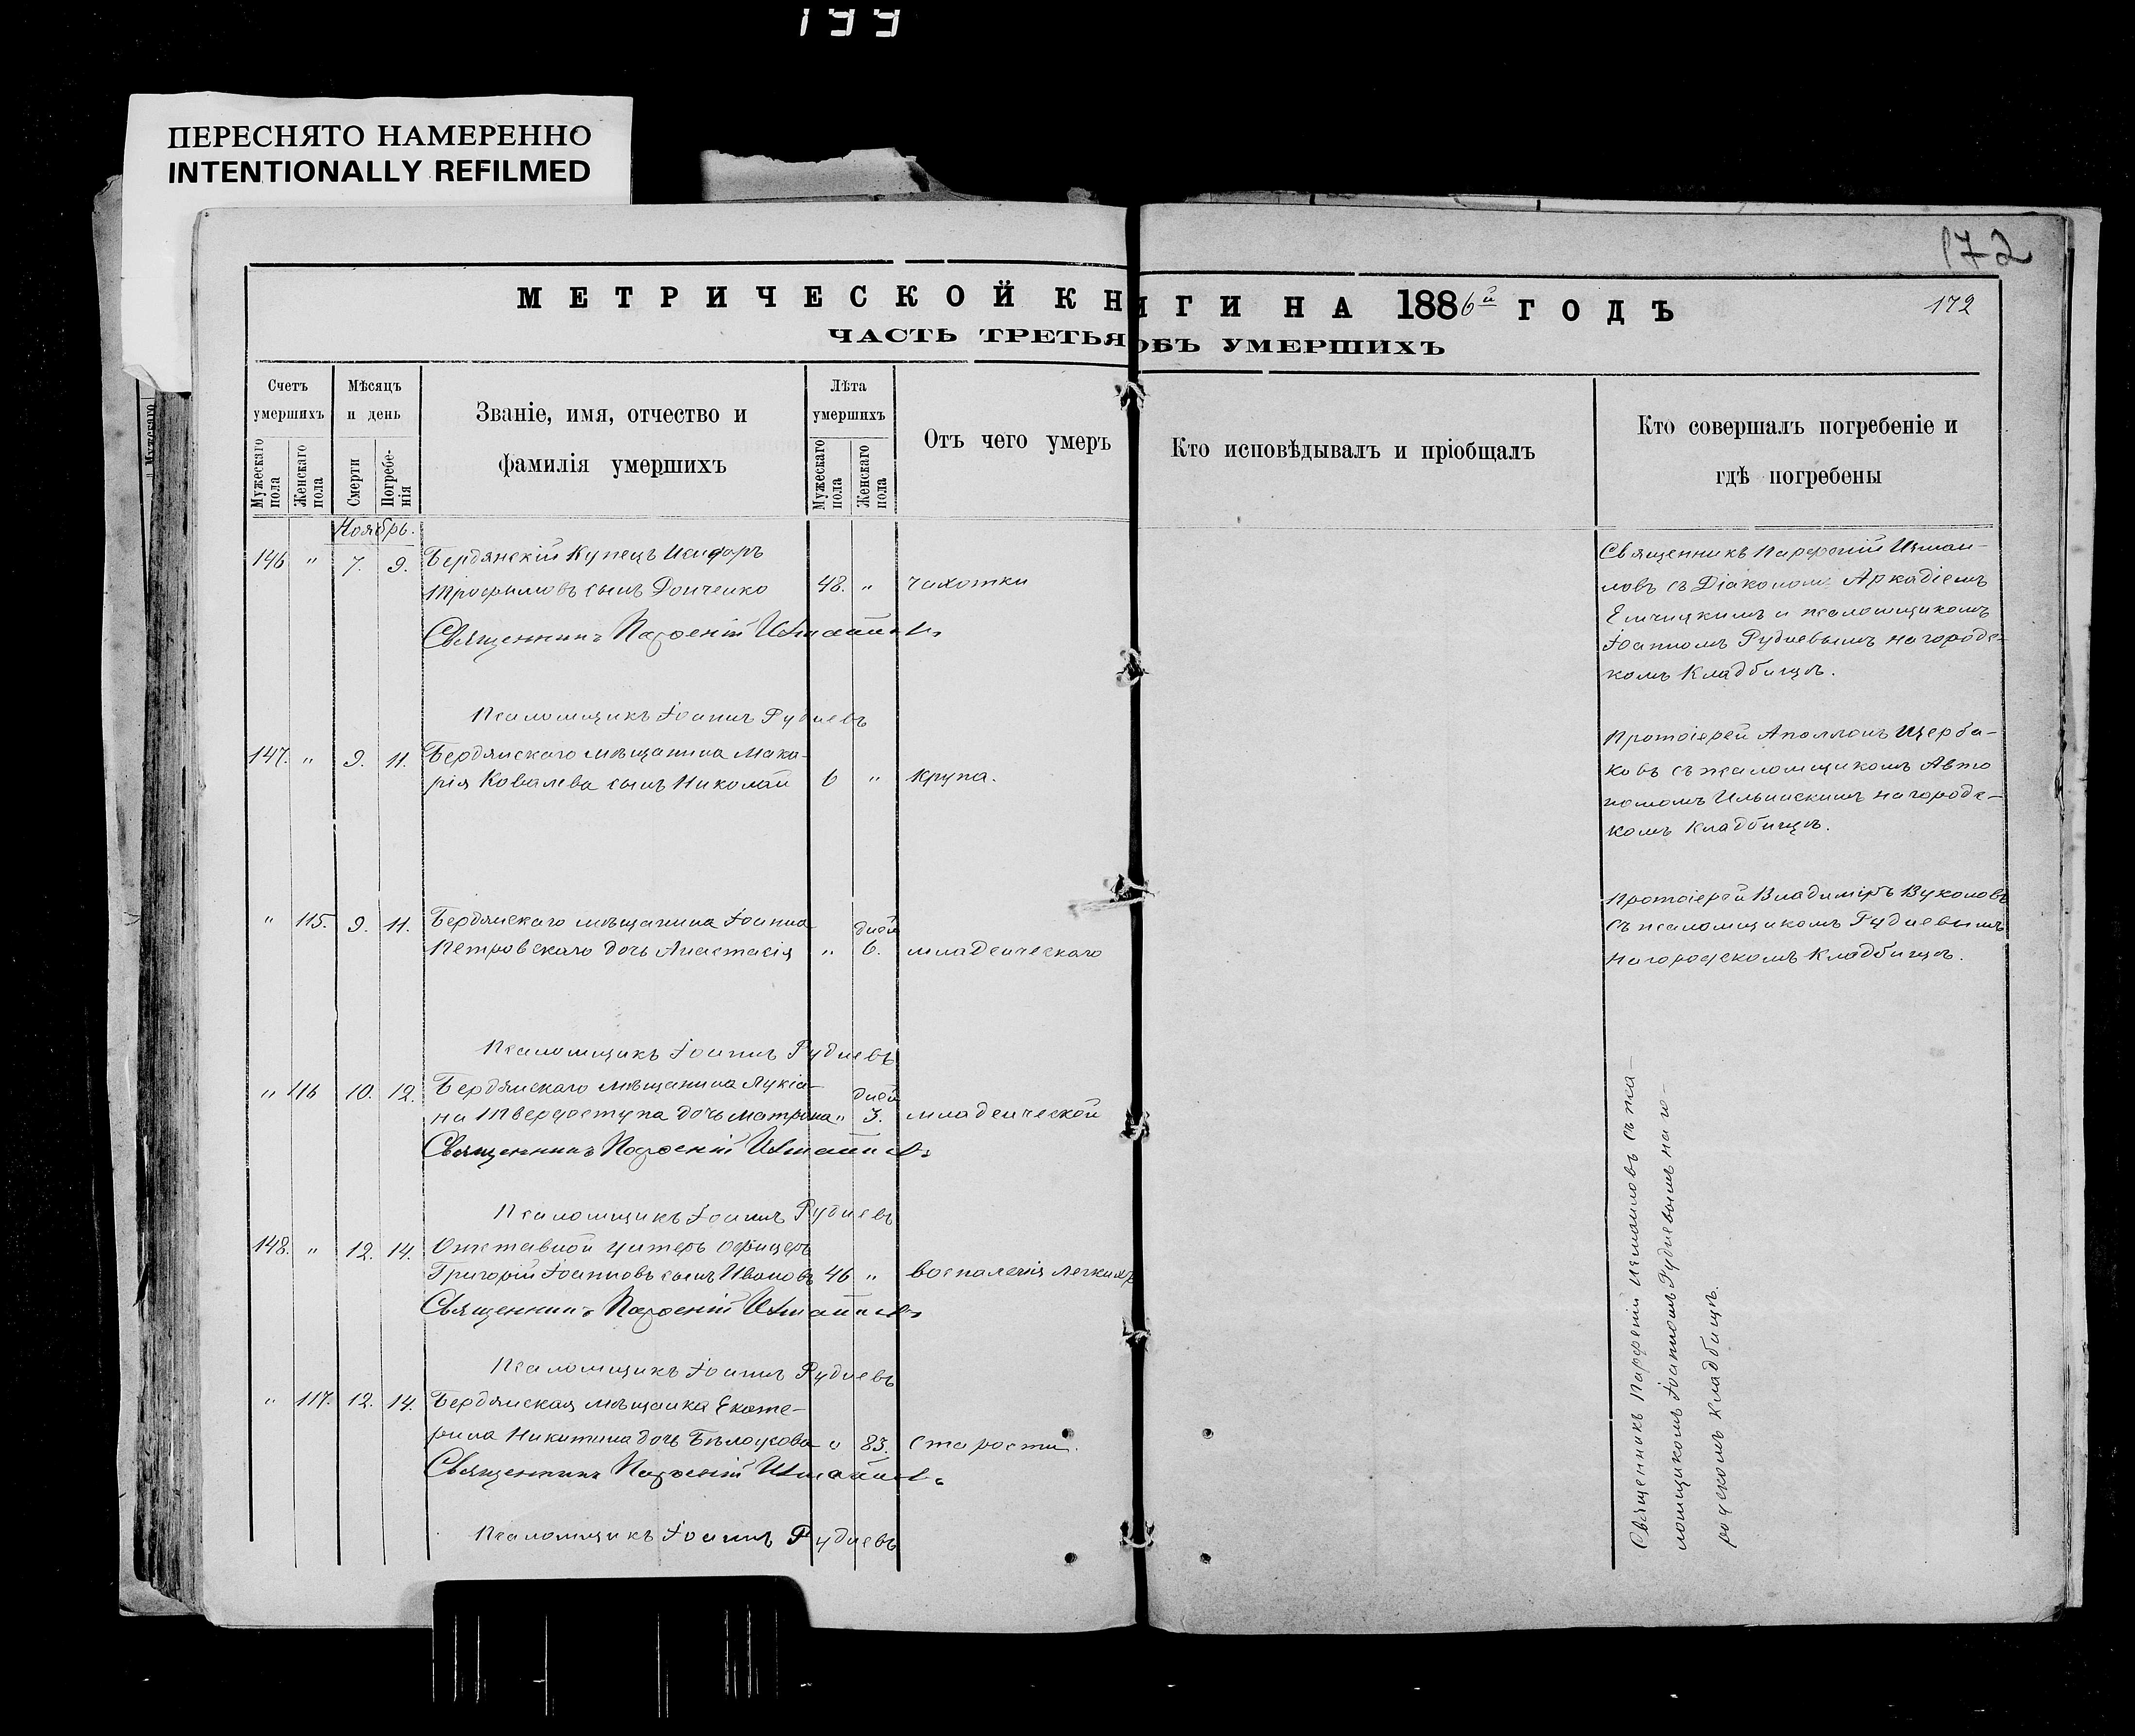 199
ПЕРЕСНЯТО НАМЕРЕННО
INTENTIONALLY REFILMED
172
МЕТРИЧЕСКОЙ КНИГИ НА 1886й ГОДЪ
172
ЧАСТЬ ТРЕТЬЯ ОБЪ УМЕРШИХЪ
Счетъ умершихъ
Мужескаго пола
Женскаго пола
Мѣсяцъ и день
Смерти
Погребенія
Званіе, имя, отчество и
фамилія умершихъ
Лѣта умершихъ
Мужескаго пола
Женскаго пола
Отъ чего умеръ
Кто исповѣдывалъ и пріобщалъ
Кто совершалъ погребеніе и
гдѣ погребены
Ноябрь.
146 " 7. 9. Бердянскій Купецъ Исидоръ
Трофимовъ сынъ Донченко 48. " чахотки
Священникъ Парѳеній Измаиловъ
Псаломщикъ Іоаннъ Рудневъ
Священникъ Парфеній Измаи-
ловъ съ Діакономъ Аркадіемъ
и псаломщикомъ
Іоанномъ Рудневымъ на городс-
комъ Кладбищѣ.
147. " 9. 11. Бердянскаго мѣщанина Мака-
рія Ковалева сынъ Николай 6 " крупа.
Протоіерей Аполлонъ Щерба-
ковъ съ псаломщикомъ Авто
номомъ Ильинскимъ на городс-
комъ кладбищѣ.
" 115. 9. 11. Бердянскаго мѣщанина Іоанна
Петровскаго дочь Анастасія " дней 6. младенческаго
Псаломщикъ Іоаннъ Рудневъ
Протоіерей Владиміръ Вуколовъ
съ псаломщикомъ Рудневымъ
на городскомъ Кладбищѣ.
" 116 10. 12. Бердянскаго мѣщанина Лукіа-
на Твердоступа дочь Матрона " дней 3. младенческой
Священникъ Парѳеній Измаиловъ
Псаломщикъ Іоаннъ Рудневъ
148. " 12. 14. Отставной унтеръ офицеръ
Григорій Іоанновъ сынъ Ивановъ 46 " воспаленія легкихъ
Священникъ Парѳеній Измаиловъ
Псаломщикъ Іоаннъ Рудневъ
" 117. 12. 14. Бердянская мѣщанка Екате-
рина Никитина дочь 83. старости.
Священникъ Парѳеній Измаиловъ
Псаломщикъ Іоаннъ Рудневъ
Священникъ Парфеній Измаиловъ съ пса-
ломщикомъ Іоанномъ Рудневымъ на го-
родскомъ кладбищѣ.